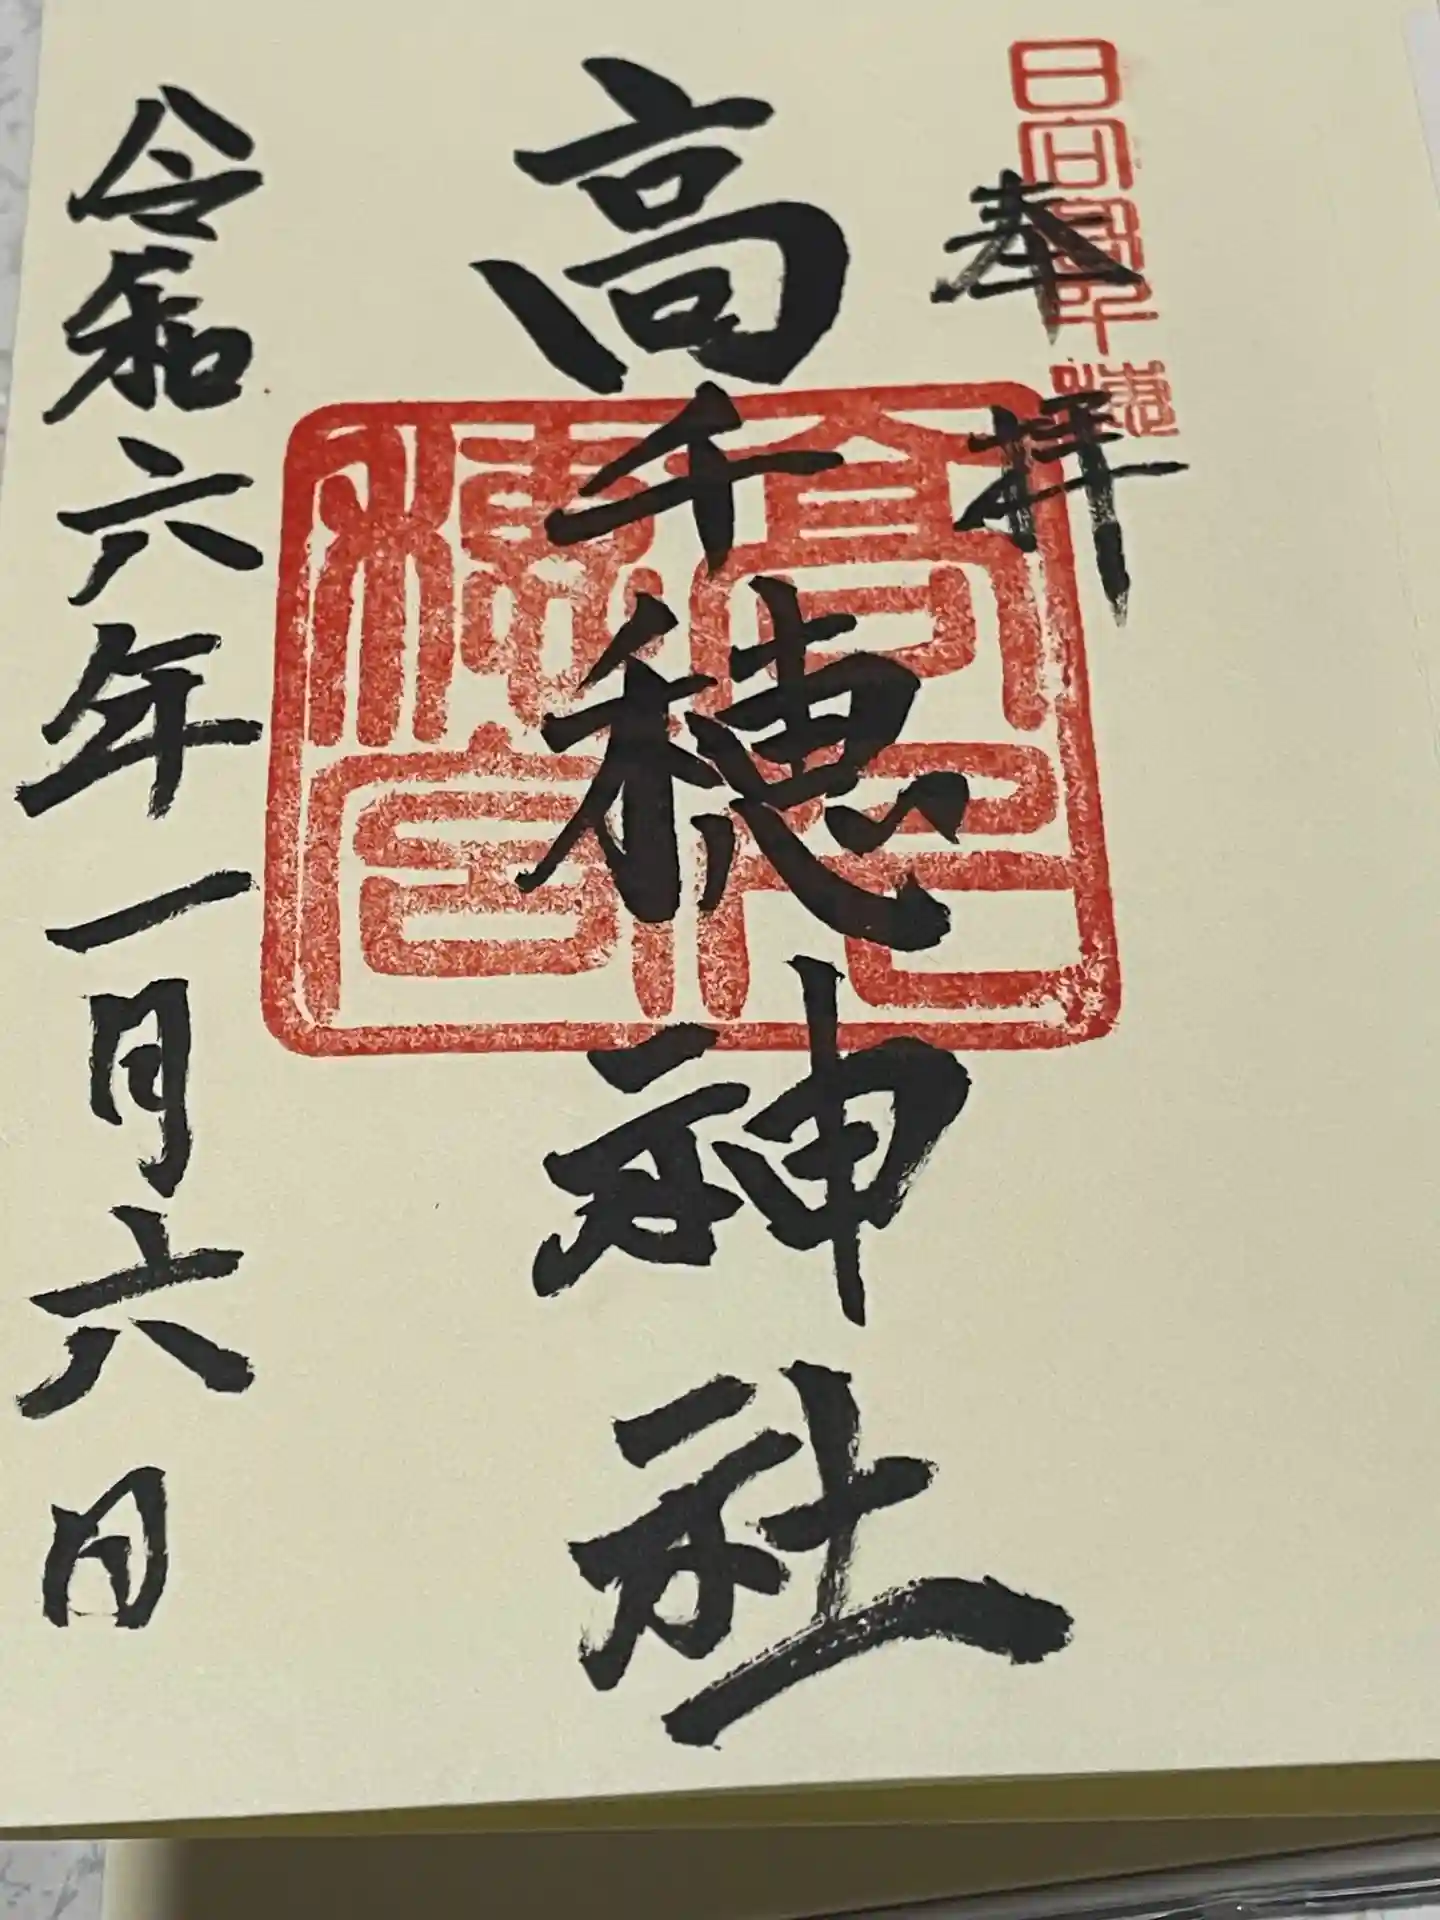 日向高千穂
奉拝
高千穂神社
高千穂宮
令和六年一月六日